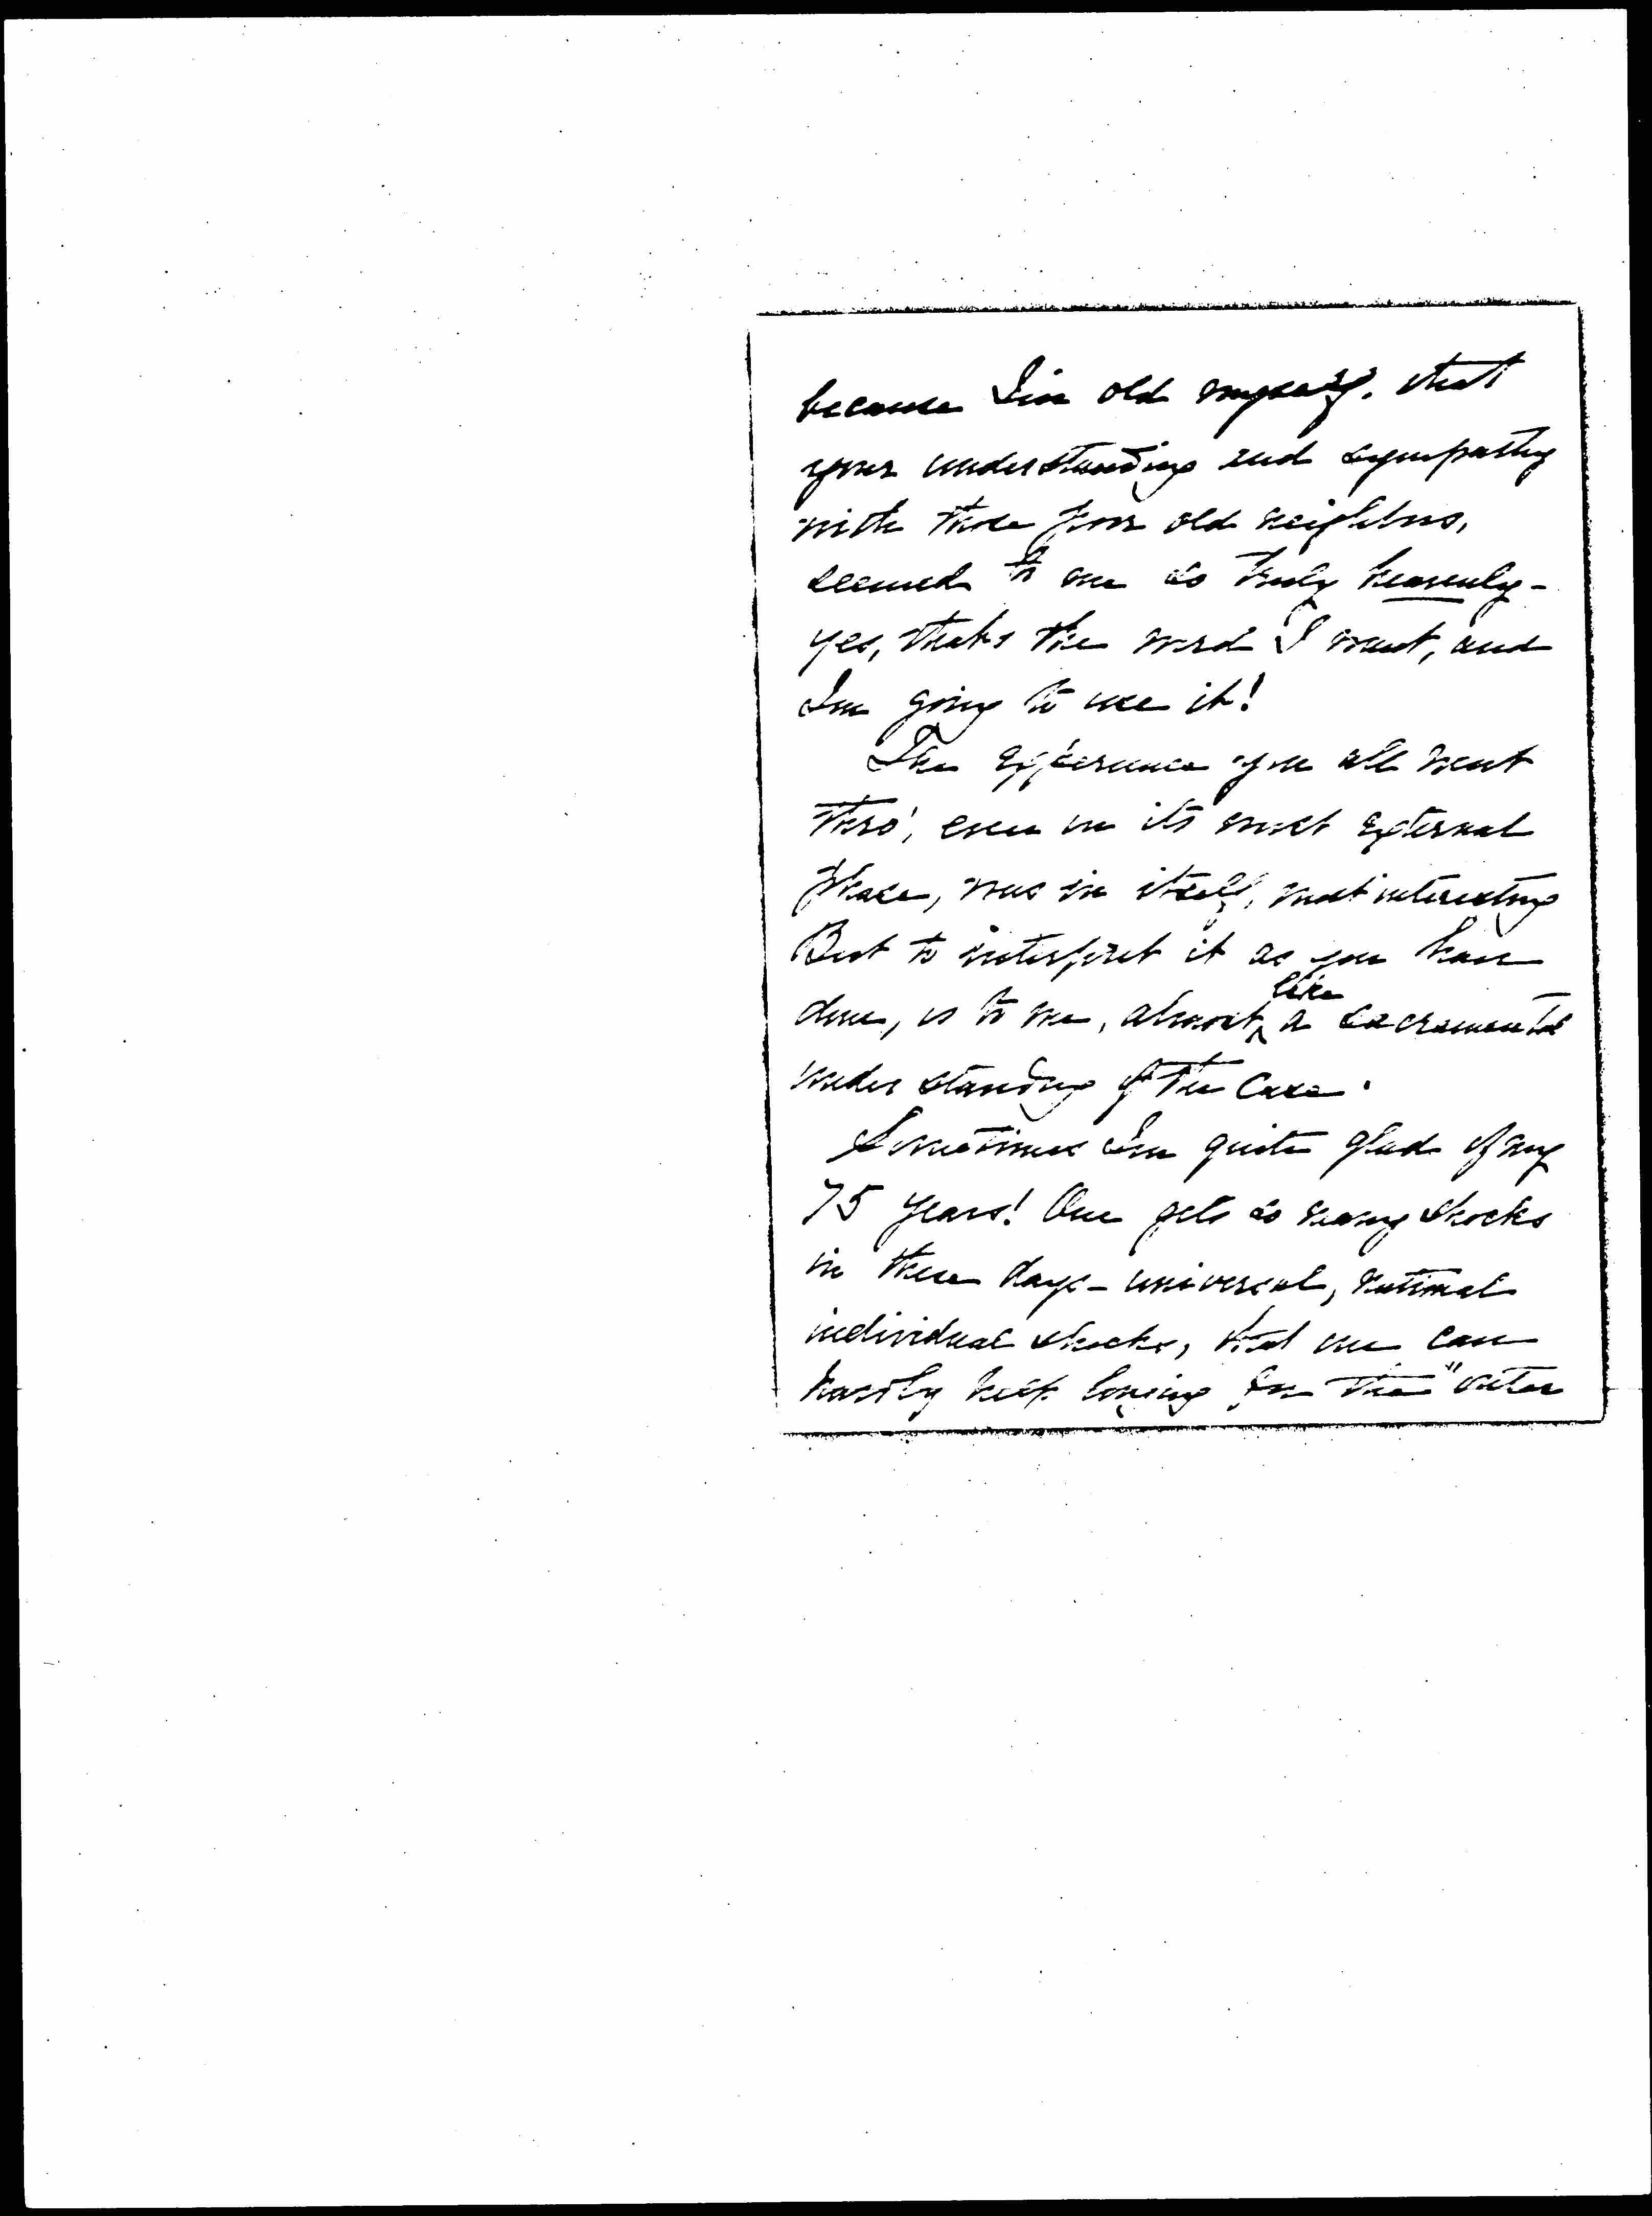 because I'm old myself. that
your understanding and sympathy
with those poor old neighbors,
seemed to me so truly heavenly -
yes, that's the word I want, and
I'm going to use it!
The experience you all went
thro', even in its most external
phase, was in itself, most interesting
But to interpret it as you have
done, is to me, almost like a sacramental
understanding of the case.
Sometimes I'm quite glad of my
75 years! One gets so many shocks
in these days - universal, national
individual shocks, that one can
hardly help longing for the "